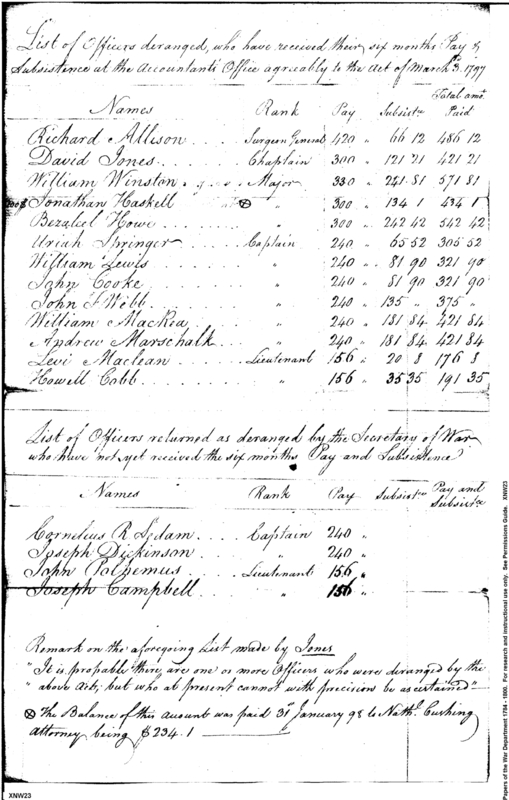 List of Officers deranged, who have received their six months Pay &
Subsistence at the Accountants Office agreeably to the Act of March 3d. 1797
Names Rank Pay Subsistce Total amt. Paid
Richard Allison Surgeon General 420 " 66 12 486 12
David Jones Chaplain 300 " 121 21 421 21
William Winston Major 330 " 241 81 571 81
Jonathan Haskell ⊗ " 300 " 134 1 434 1
Bezaleel Howe " 300 " 242 42 542 42
Uriah Springer Captain 240 " 65 52 305 52
William Lewis " 240 " 81 90 321 90
John Cooke " 240 " 81 90 321 90
John F Webb " 240 " 135 " 375 "
William MacRea " 240 " 181 84 421 84
Andrew Marschalk " 240 " 181 84 421 84
Levi Maclean Lieutenant 156 " 20 8 176 8
Howell Cobb " 156 " 35 35 191 35
List of Officers returned as deranged by the Secretary of War
who have not yet received the six months Pay and Subsistence
Names Rank Pay Subsistce Pay and Subsistce
Cornelius R Sedam Captain 240 "
Joseph Dickinson " 240 "
John Polhemus Lieutenant 156 "
Joseph Campbell " 156 "
Remark on the aforegoing List made by Jones
"It is propable there are one or more Officers who were deranged by the
"above Act, but who at present cannot with precision be ascertained"
⊗ The Balance of this Account was paid 31 January 98 to Nathl. Cushing
Attorney being $234.1
XNW23
Papers of the War Department 1784 - 1800. For research and instructional use only. See Permissions Guide. XNW23